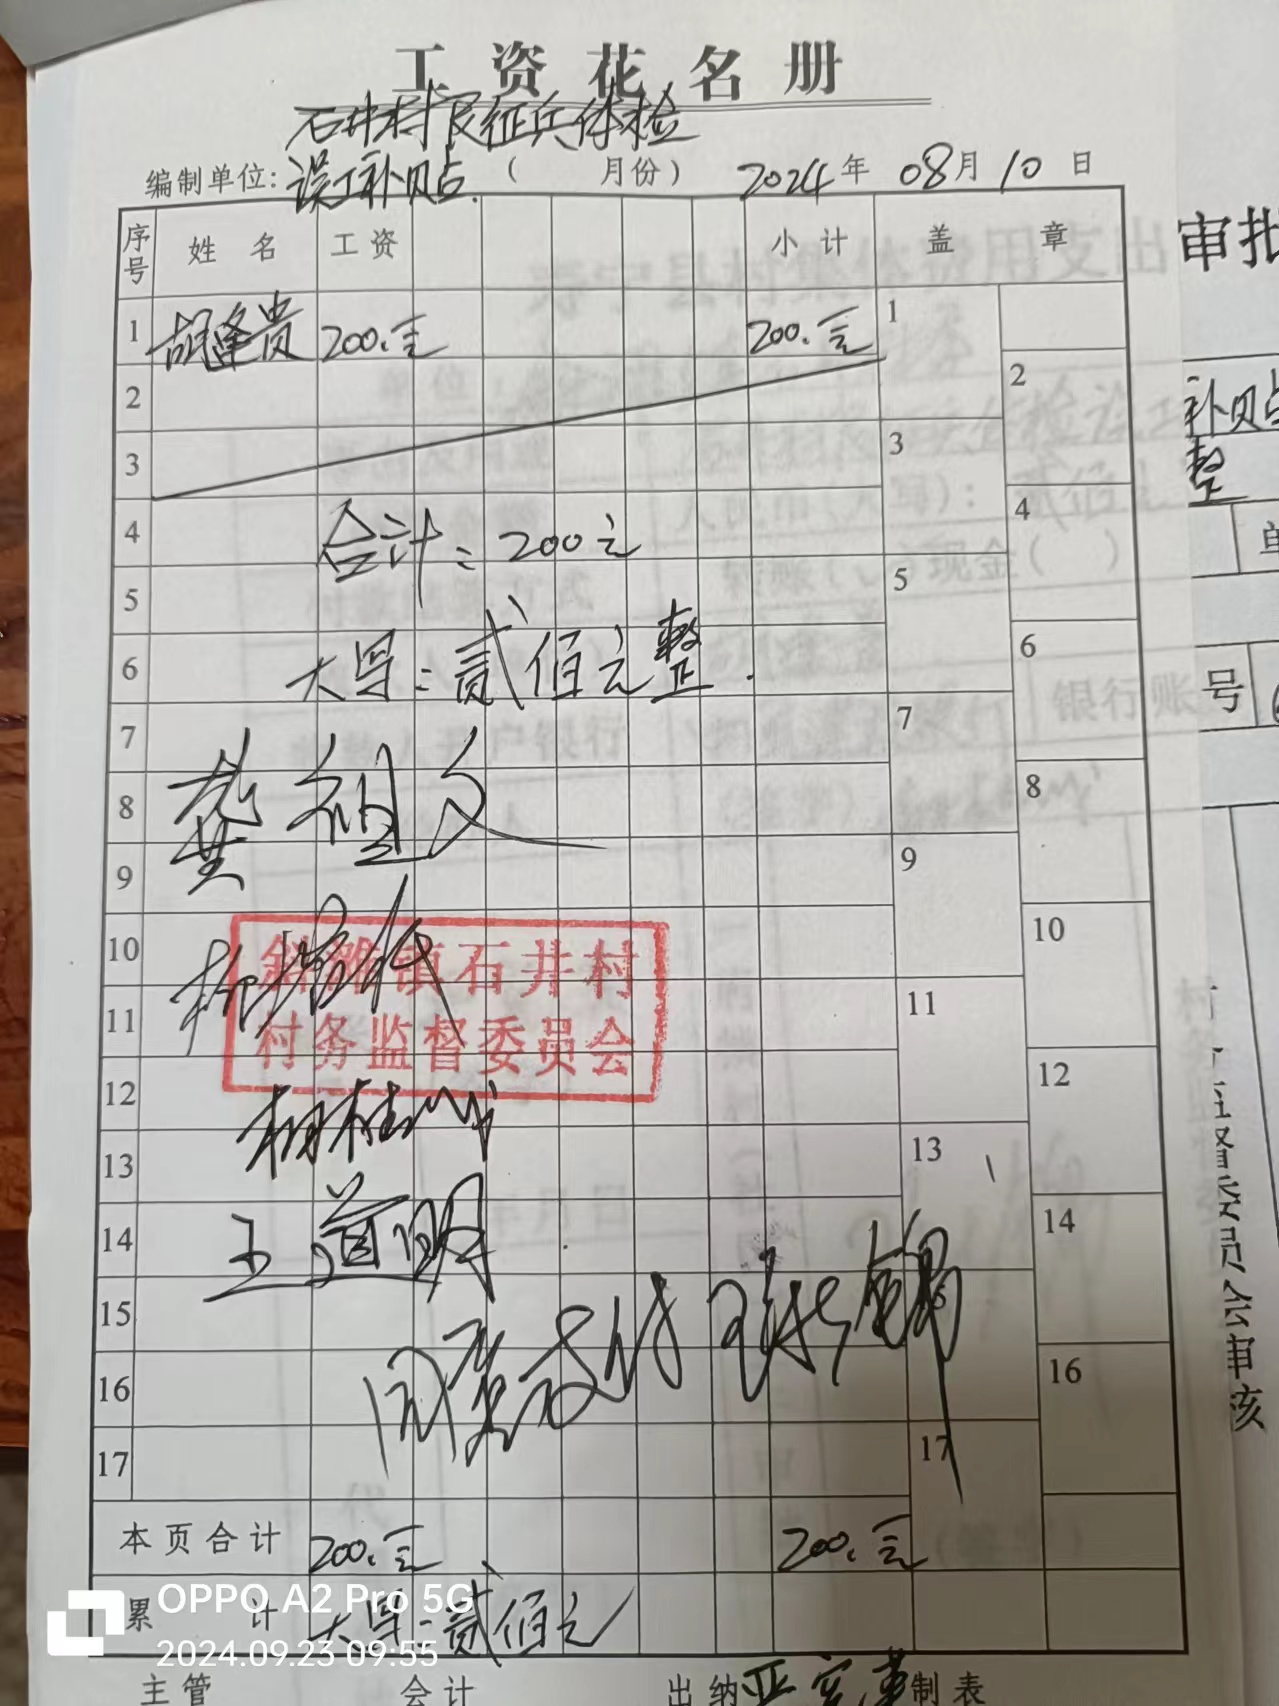 工资花名册
石井村民征兵体检
编制单位: 误工补贴 ( 月份) 2024年 08月 10日
审批
序号 姓名 工资 小计 盖章
1 胡逢贵 200.元 200.元 1
2 2
3 3
补贴
整
4 合计: 200元 4
5 5
6 大写: 贰佰元整. 6
号
7 7
龚祖文
8 8
9 9
10 10
斜滩镇石井村
11 11
村务监督委员会
12 12
柳桂
13 13
14 王道明 14
15
同意支付
16 16
17 17
监督委员会审核
本页合计 200.元 200.元
累计 大写: 贰佰元
OPPO A2 Pro 5G
2024.09.23 09:55
主管 会计 出纳 制表